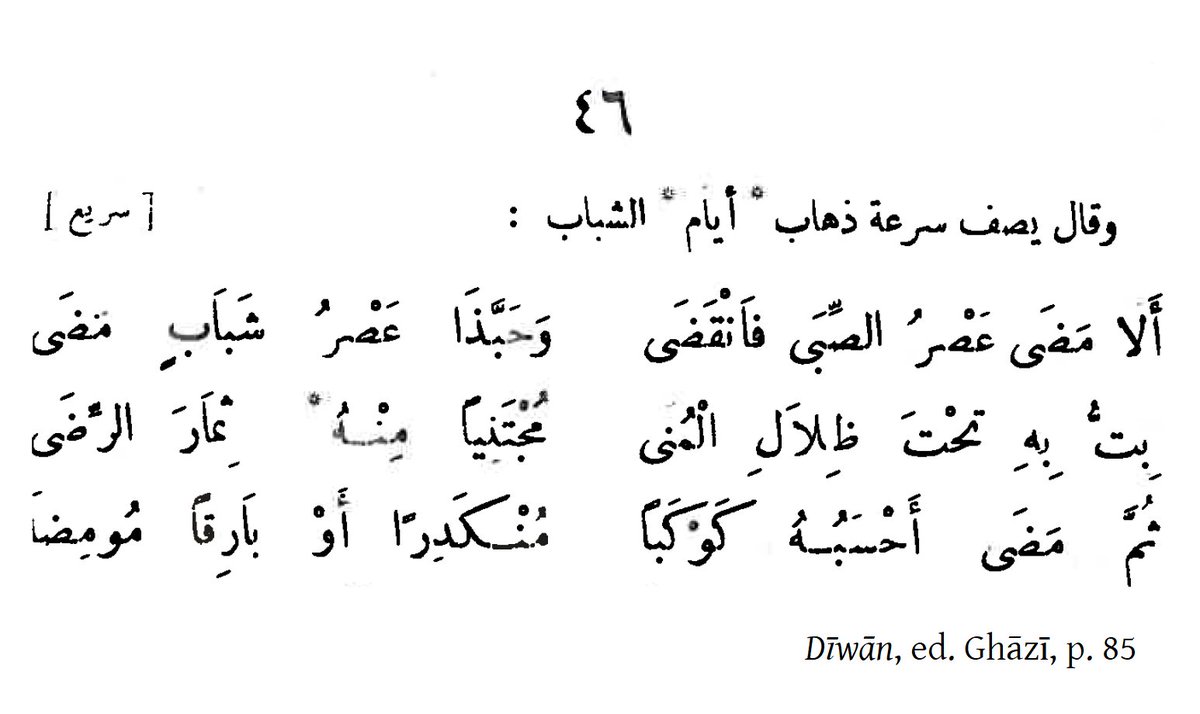 ٤٦
وقال يصف سرعة ذهاب * أيام * الشباب : [ سريع ]
أَلا مَضَى عَصْرُ الصِّبَى فَانْقَضَى وَحَبَّذَا عَصْرُ شَبَابٍ مَضَى
بِتُّ بِهِ تَحْتَ ظِلَالِ الْمُنى مُجْتَنِياً مِنْهُ * ثِمَارَ الرِّضَى
ثُمَّ مَضَى أَحْسَبُهُ كَوْكَباً مُنْكَدِرًا أَوْ بَارِقاً مُومِضاَ
Dīwān, ed. Ghāzī, p. 85